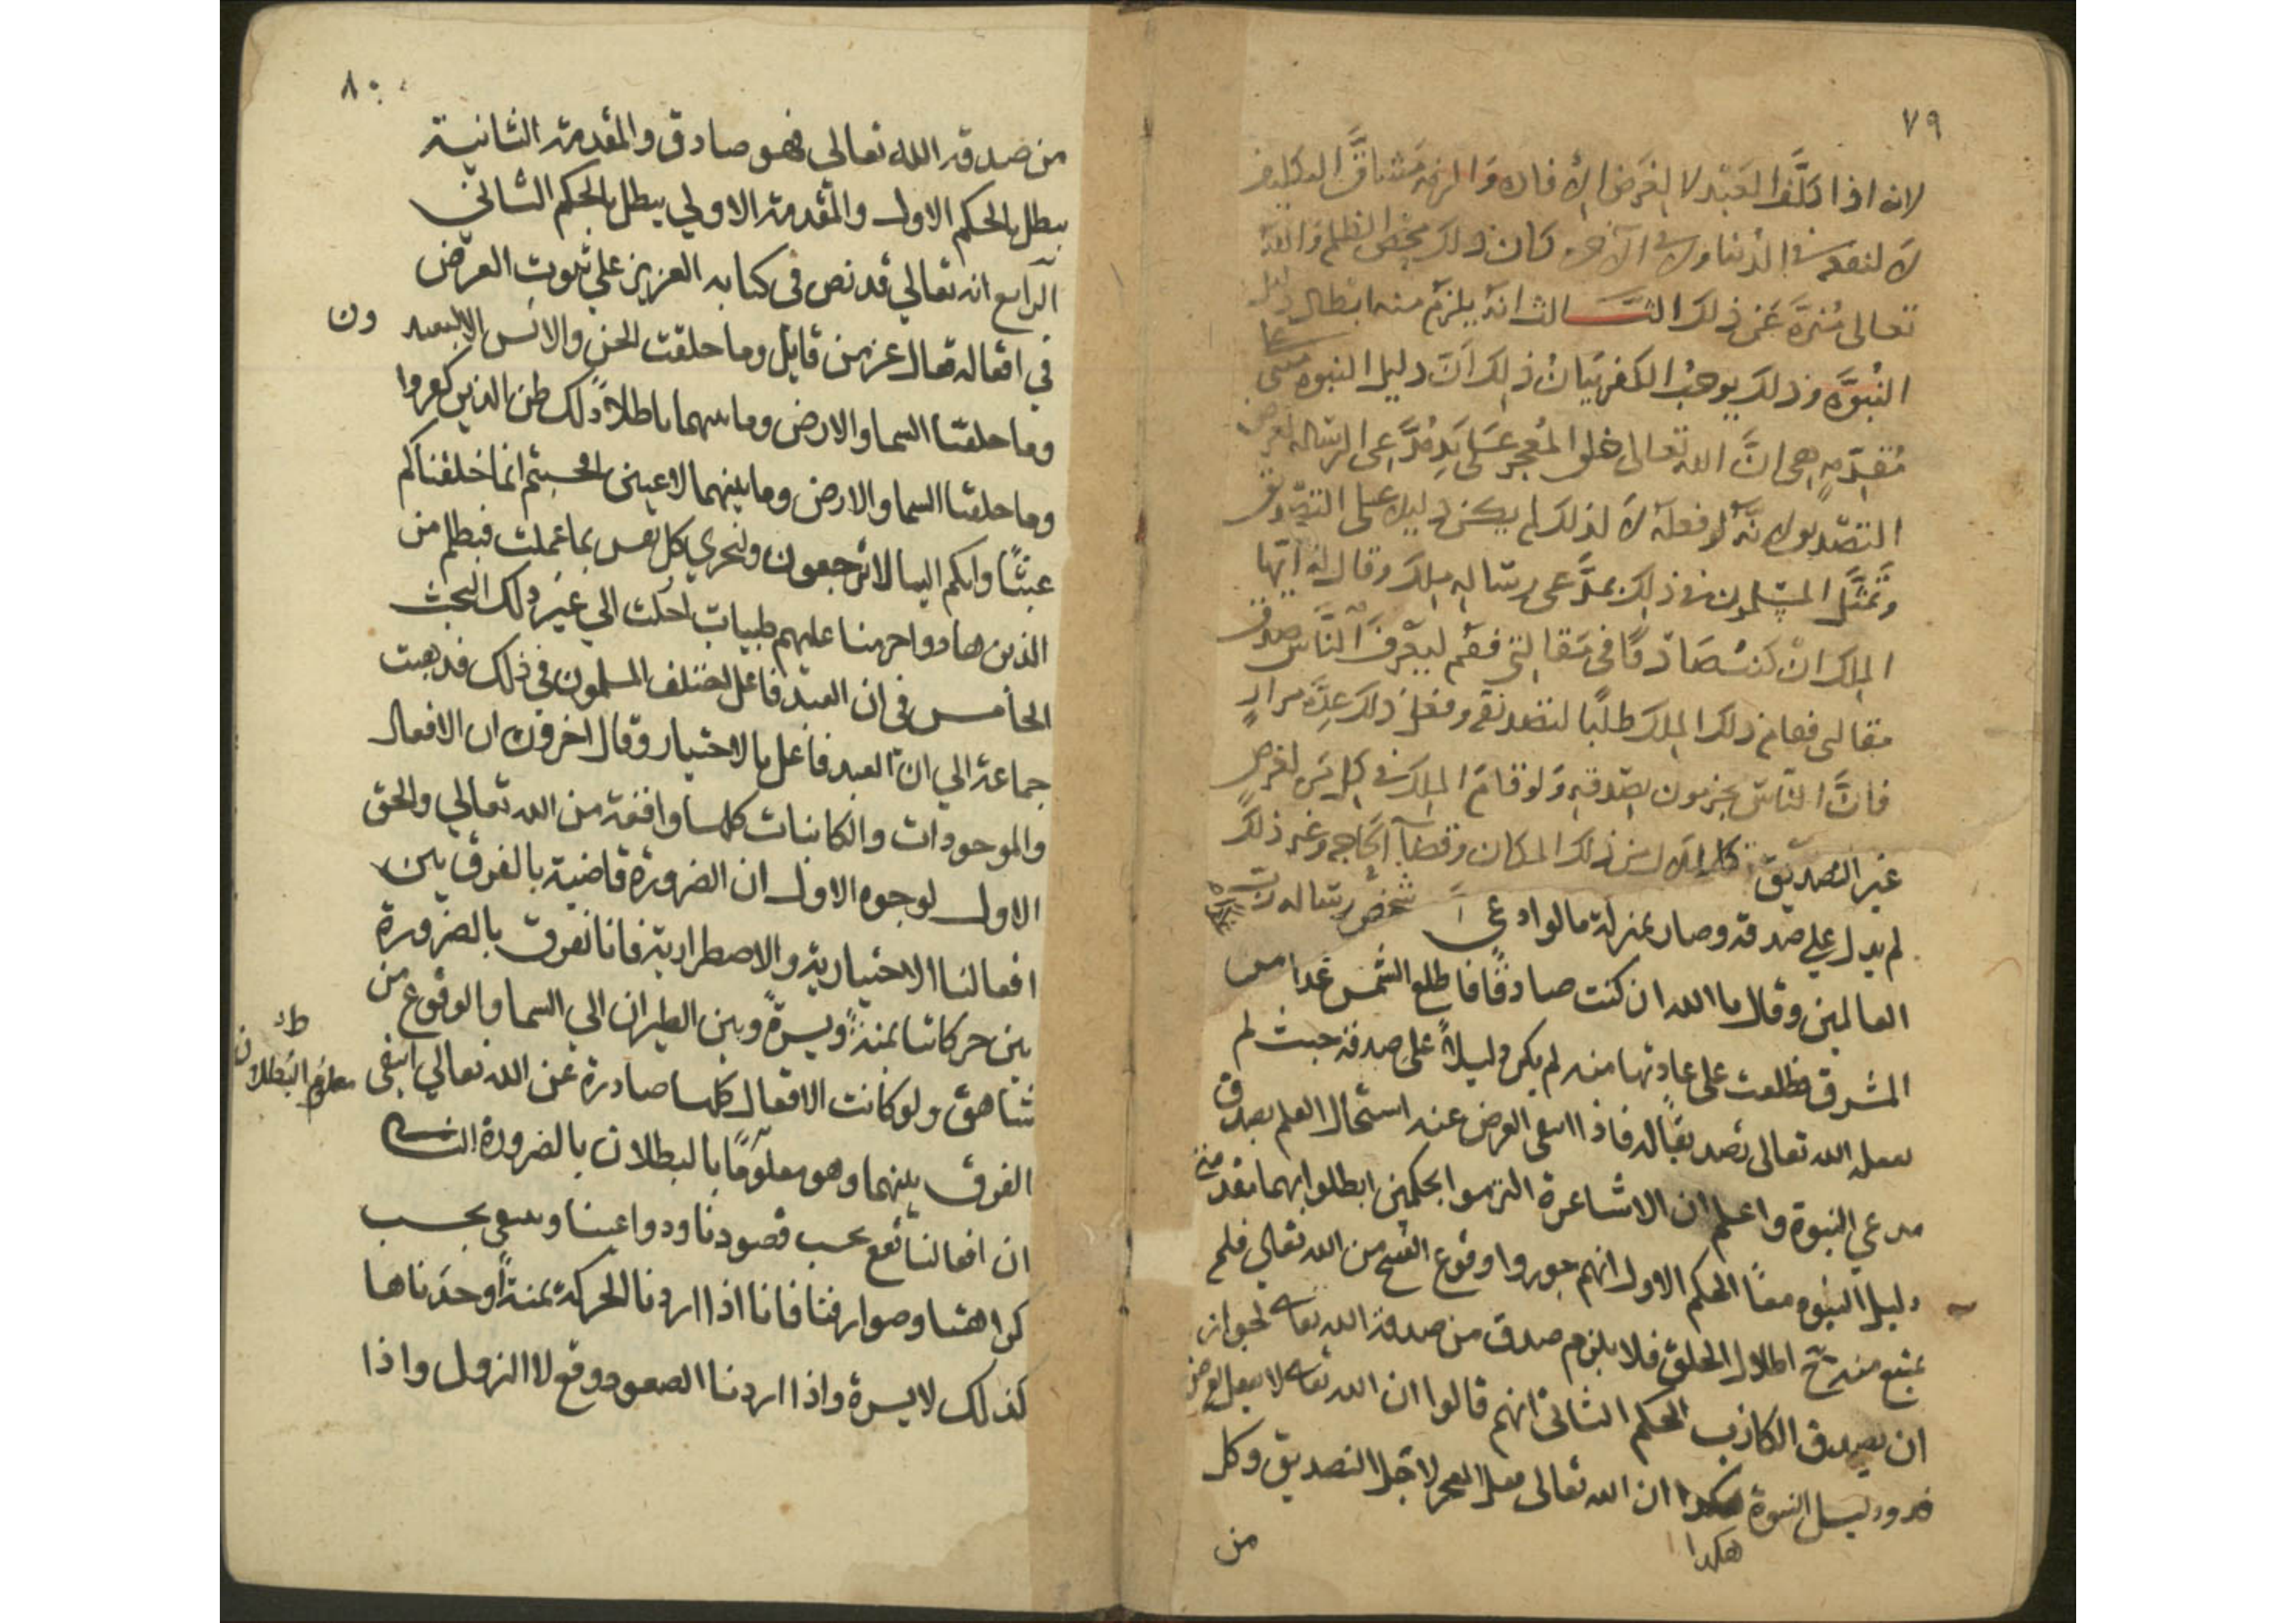 ٧٩
لانه اذا كَلَّفَ العَبْدَ لا لِغَرَضِ الإفادة وَالزمه مَشاقَّ التكليف
لا لنفعه في الدُنيا ولا في الآخرة كان ذلك محض الظلم وَاللهُ
تعالى مُنزَّه عَن ذلك الثَــالث انَّهُ يلزم منه ابطال دليل
النُبوَّة وذلك يوجبُ الكفر بَيَانُ ذلك اَنَّ دليل النبوة مبنى على
مُقدّمةٍ هي انَّ الله تعالى خلق المُعجز عَلى يَدِ مُدَّعِى الرسالة لغرض
التصديق لانَّهُ لو فعلَهُ لا لذلك لم يكن دليلا على التصديق
وَتَمَثَّلَ المسلمون في ذلك بمدَّعى رسالة ملك وقال له ايّها
الملك انْ كنتُ صَادقًا في مَقالتي فقُم ليَعْرِفَ النَّاسُ صدق
مقالتى فقام ذلك الملك طلبًا لتصديقه وفعل ذلك عِدَّة مرارٍ
فانَّ النَّاسَ يجزمون بصِدقه وَلو قامَ الملك في كل يَومٍ لغرض
غير التصديق كالملالة من ذلك المكان وقضآء الحَاجَة وغير ذلك
لم يدل علي صدقه وصار بمنزلة مالو ادعى شخصٌ رسالة رب
العالمين وقال ما الله ان كنت صادقًا فاطلع الشمس غدا من
المشرق فطلعت على عادتها منه لم يكن دليلاً على صدقه حيث لم
يفعله الله تعالى تصديقًا له فاذا انتفى الغرض عنه استحال العلم بصدق
مدعي النبوة واعلم ان الاشاعرة التزموا بحكمين ابطلوا بهما مقدمتى
دليل النبوة معًا الحكم الاول انهم جوزوا وقوع القبيح من الله تعالي فلم
يمتنع منه ح اضلال الخلق فلا يلزم صدق من صدقه الله تعا لجواز
ان يصدق الكاذب الحكم الثاني انهم قالوا ان الله تعا لا يفعل لغرض
ودليل النبوة هكدا ان الله تعالى فعل المعجز لاجل التصديق وكل
هكدا
من
٨٠
من صدقه الله تعالي فهو صادق والمقدمة الثانية
يبطل بالحكم الاول والمقدمة الاولي يبطل بالحكم الثاني
الرابع انه تعالي قد نص في كتابه العزيز علي ثبوت الغرض
في افعاله فقال عز من قايل وما خلقت الجن والانس الا ليعبدون
وما خلقنا السما والارض وما بينهما باطلاً ذلك ظن الذين كفروا
وما خلقنا السما والارض وما بينهما لاعبين افحسبتم انما خلقناكم
عبثًا وانكم الينا لا ترجعون ولتجزي كل نفس بما عملت فبظلم من
الذين هادوا حرمنا عليهم طيبات احلت الي غير ذلك البحث
الخامس في ان العبد فاعل اختلف المسلمون في ذلك فذهبت
جماعة الي ان العبد فاعل بالاختيار وقال اخرون ان الافعال
والموجودات والكاينات كلها واقعة من الله تعالي والحق
الاول لوجوه الاول ان الضرورة قاضية بالفرق بين
افعالنا الاختيارية والاضطرارية فانا نفرق بالضرورة
بين حركاتنا يمنةً ويسرةً وبين الطيران الي السما والوقوع من
شاهق ولو كانت الافعال كلها صادرة عن الله تعالي انتفى
معلوم البطلان
الفرق بينهما وهو معلومًا بالبطلان بالضرورة الثاني
ان افعالنا تقع بحسب قصودنا ودواعينا وينتفي بحسب
كراهتنا وصوارفنا فانا اذا اردنا الحركة يمنةً وجدناها
كذلك لا يسرة واذا اردنا الصعود وقع لا النزول واذا